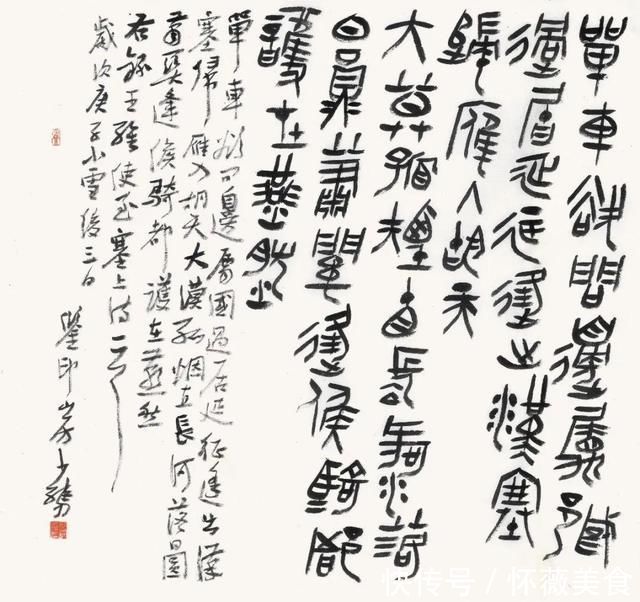 單車欲問邊屬國
過居延征蓬出漢塞
歸雁入胡天
大漠孤煙直長河落
日圓蕭關逢候騎都
護在燕然
單車欲問邊屬國過居延征蓬出漢
塞歸雁入胡天大漠孤烟直長河落日圓
蕭關逢候騎都護在燕然
右錄王維使至塞上詩一首
歲次庚子小雪後三日
印山房少
快传号 / 怀薇美食